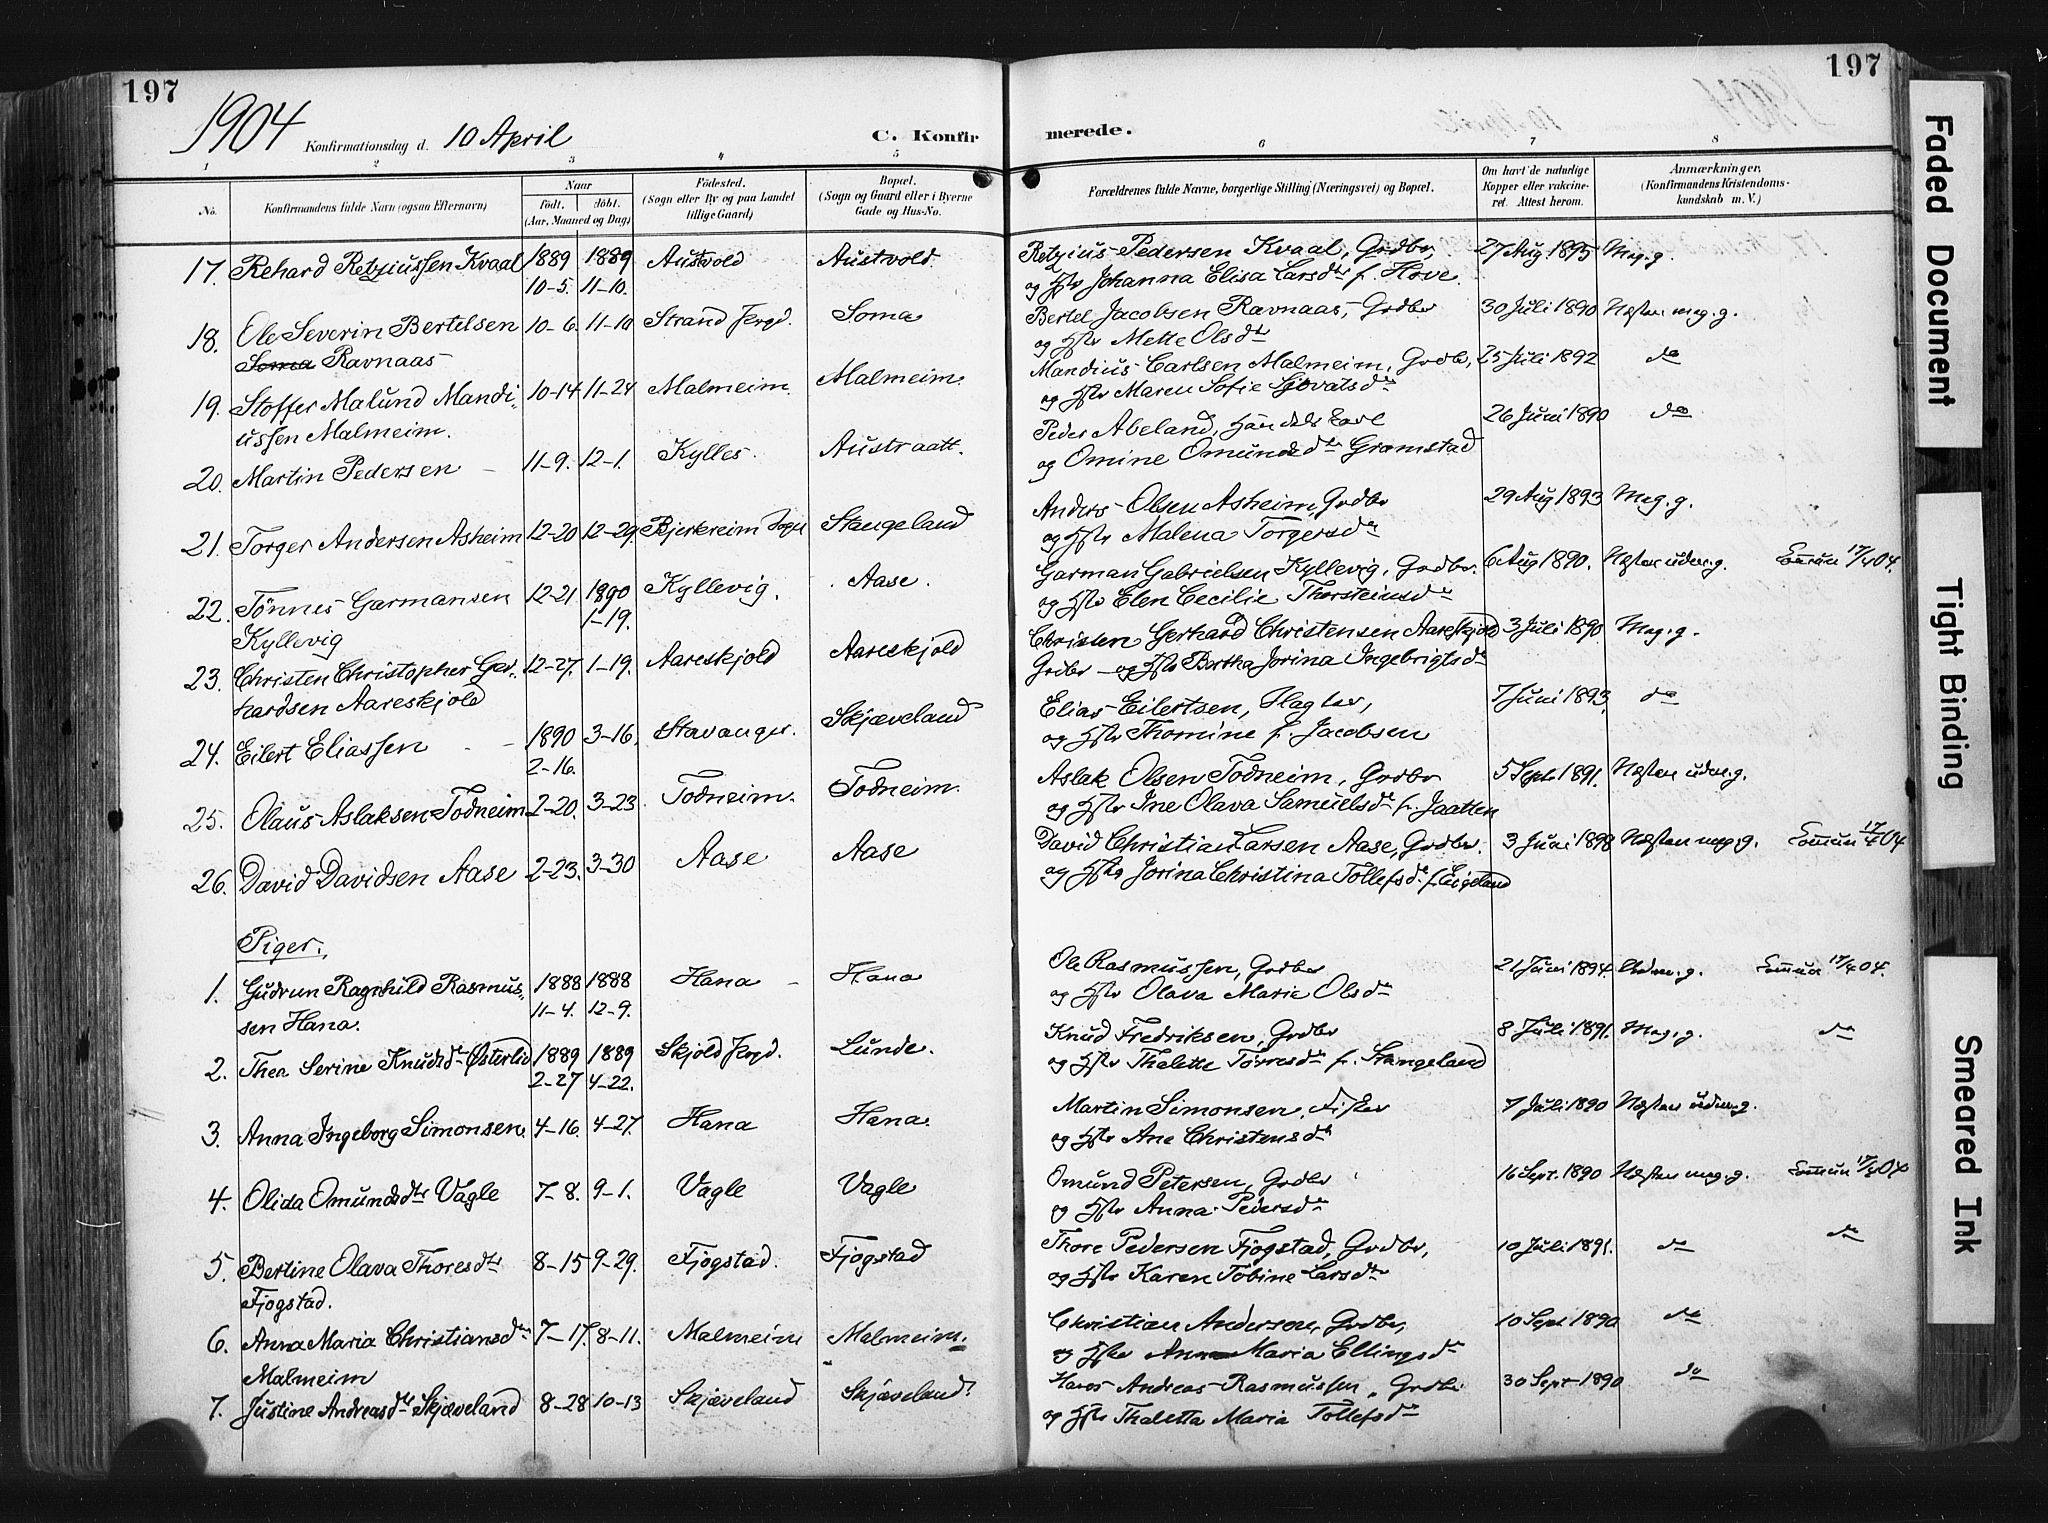 197
197
1904 Konfirmationsdag d. 10 April
C. Konfir
merede.
1 2 3 4 5
6 7 8
No.
Konfirmandens fulde Navn (ogsaa Efternavn)
Naar
født. døbt.
(Aar, Maaned og Dag)
Fødested.
(Sogn eller By og paa Landet
tillige Gaard)
Bopæl.
(Sogn og Gaard eller i Byerne
Gade og Hus-No.
Forældrenes fulde Navne, borgerlige Stilling (Næringsvei) og Bopæl.
Om havt de naturlige
Kopper eller vakcine-
ret. Attest herom.
Anmærkninger.
(Konfirmandens Kristendoms-
kundskab m. V.)
17. Rehard Retziussen Kvaal 1889 1889 Austvold Austvold.
10-5. 11-10.
Retzius Pedersen Kvaal, Grdbr, 27 Aug 1895 Meg. g.
og Hstr Johanna Elisa Larsdtr f. Hove.
18. Ole Severin Bertelsen 10-6. 11-10 Strand Prgd. Soma
Soma Ravnaas
Bertel Jacobsen Ravnaas, Grdbr 30 Juli 1890 Næsten meg. g.
og Hstr Mette Olsdtr
19. Stoffer Malund Mandi- 10-14 11-24 Malmeim. Malmeim.
ussen Malmeim.
Mandius Carlsen Malmeim, Grdbr, 25 Juli 1892 do
og Hstr Maren Sofie Sjovatsdtr
20. Martin Pedersen 11-9. 12-1. Kylles. Austraatt.
Peder Abeland, Handelskarl 26 Juni 1890 do
og Omine Omundsdtr Gramstad
21. Torger Andersen Asheim 12-20 12-29. Bjerkreim Sogn Stangeland
Anders Olsen Asheim, Grdbr 29 Aug 1893 Meg. g.
og Hstr Malena Torgersdtr
22. Tønnes Garmansen 12-21. 1890 Kyllevig. Aase.
Kyllevig 1-19.
Garman Gabrielsen Kyllevig, Grdbr. 6 Aug 1890. Næsten udm. g. 17/4 04.
og Hstr Elen Cecilie Thorsteinsdtr
23. Christen Christopher Ger- 12-27. 1-19. Aareskjold Aareskjold
hardsen Aareskjold
Christen Gerhard Christensen Aareskjold 3 Juli 1890. Meg. g.
Grdbr - og Hstr Bertha Jorina Ingebrigtsdtr
24. Eilert Eliassen 1890 3-16. Stavanger. Skjæveland
2-16.
Elias Eilertsen, 7 Juni 1893. do
og Hstr Thomine f. Jacobsen
25. Olaus Aslaksen Todneim 2-20. 3-23. Todneim. Todneim.
Aslak Olsen Todneim, Grdbr 5 Sept. 1891. Næsten udm. g.
og Hstr Ine Olava Samuelsdtr f. Jaatten
26. David Davidsen Aase 2-23. 3-30 Aase Aase
David Christian Larsen Aase, Grdbr. 3 Juni 1890 Næsten meg. g. 17/4 04
og Hstr Jorina Christina Tollefsdtr f. Eigeland
Piger.
1. Gudrun Ragnhild Rasmus- 1888 1888 Hana Hana
sen Hana. 11-4. 12-9.
Ole Rasmussen, Grdbr 21 Juni 1894. Udm. g. 17/4 04.
og Hstr Olava Marie Olsdtr
2. Thea Serine Knudsdtr Østerlid 1889 1889 Skjold Prgd. Lunde.
2-27 4-22.
Knud Fredriksen, Grdbr 8 Juli 1891. Meg. g. do
og Hstr Thalette Tørresdtr f. Stangeland
3. Anna Ingeborg Simonsen. 4-16. 4-27. Hana Hana.
Martin Simonsen, Fisker 7 Juli 1890 Næsten udm. g.
og Hstr Ane Christensdtr
4. Olida Omundsdtr Vagle 7-8. 9-1. Vagle Vagle
Omund Petersen, Grdbr 16 Sept. 1890 Næsten meg. g. 17/4 04
og Hstr Anna Pedersdtr
5. Bertine Olava Thoresdtr 8-15 9-29. Fjogstad. Fjogstad
Fjogstad.
Thore Pedersen Fjogstad, Grdbr, 10 Juli 1891. do do
og Hstr Karen Tobine Larsdtr
6. Anna Maria Christiansdtr 7-17. 8-11. Malmeim Malmeim.
Malmeim
Christian Anderson, Grdbr, 10 Sept 1890 do
og Hstr Anna Maria Ellingsdtr
7. Justine Andreasdtr Skjæveland 8-28 10-13 Skjæveland Skjæveland.
Hans Andreas Rasmussen, Grdbr 30 Sept 1890 do
og Hstr Thaletta Maria Tollefsdtr
Faded Document
Tight Binding
Smeared Ink